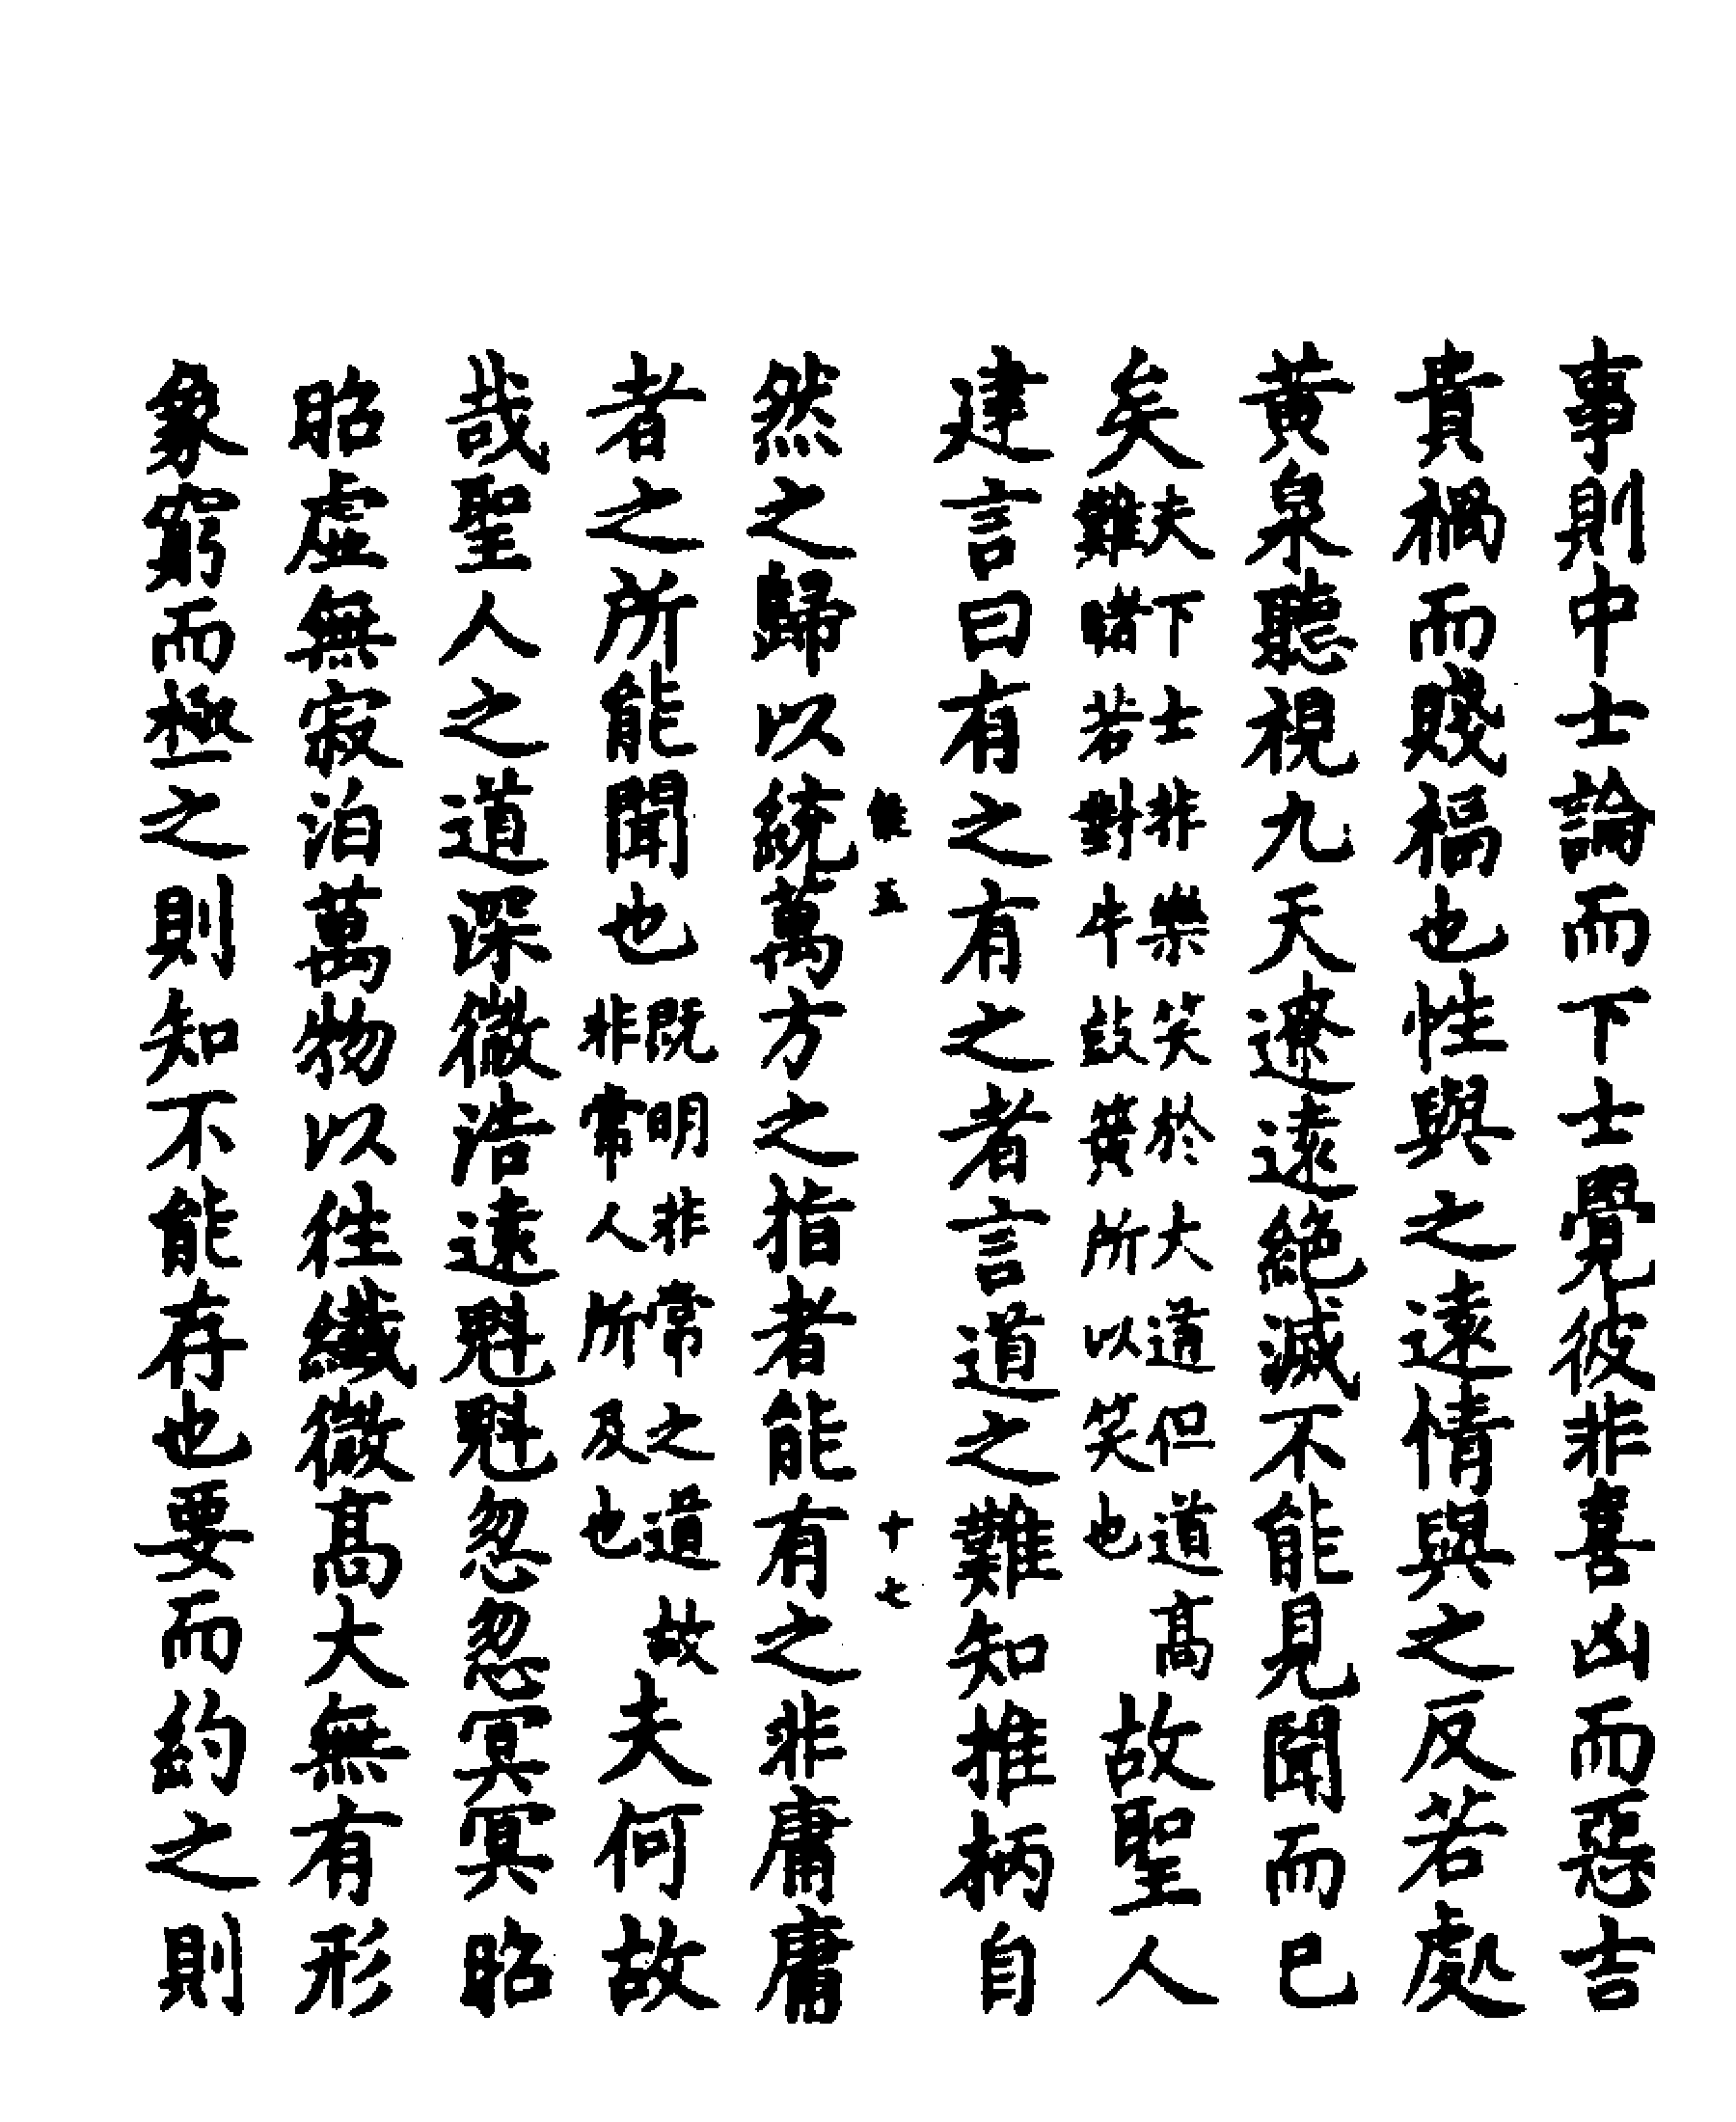 事則中士論而下士覺彼非喜凶而惡吉
貴禍而賤福也性與之遠情與之反若處
黃泉聽視九天遼遠絕滅不能見聞而已
矣夫下士非樂笑於大道但道高難喈若對牛鼓簧所以笑也故聖人
建言曰有之有之者言道之難知推柄自
能五 十七
然之歸以統萬方之指者能有之非庸庸
者之所能聞也既明非常之道故非常人所及也夫何故
哉聖人之道深微浩遠魁魁忽忽冥冥昭
昭虛無寂泊萬物以往纖微高大無有形
象窮而極之則知不能存也要而約之則